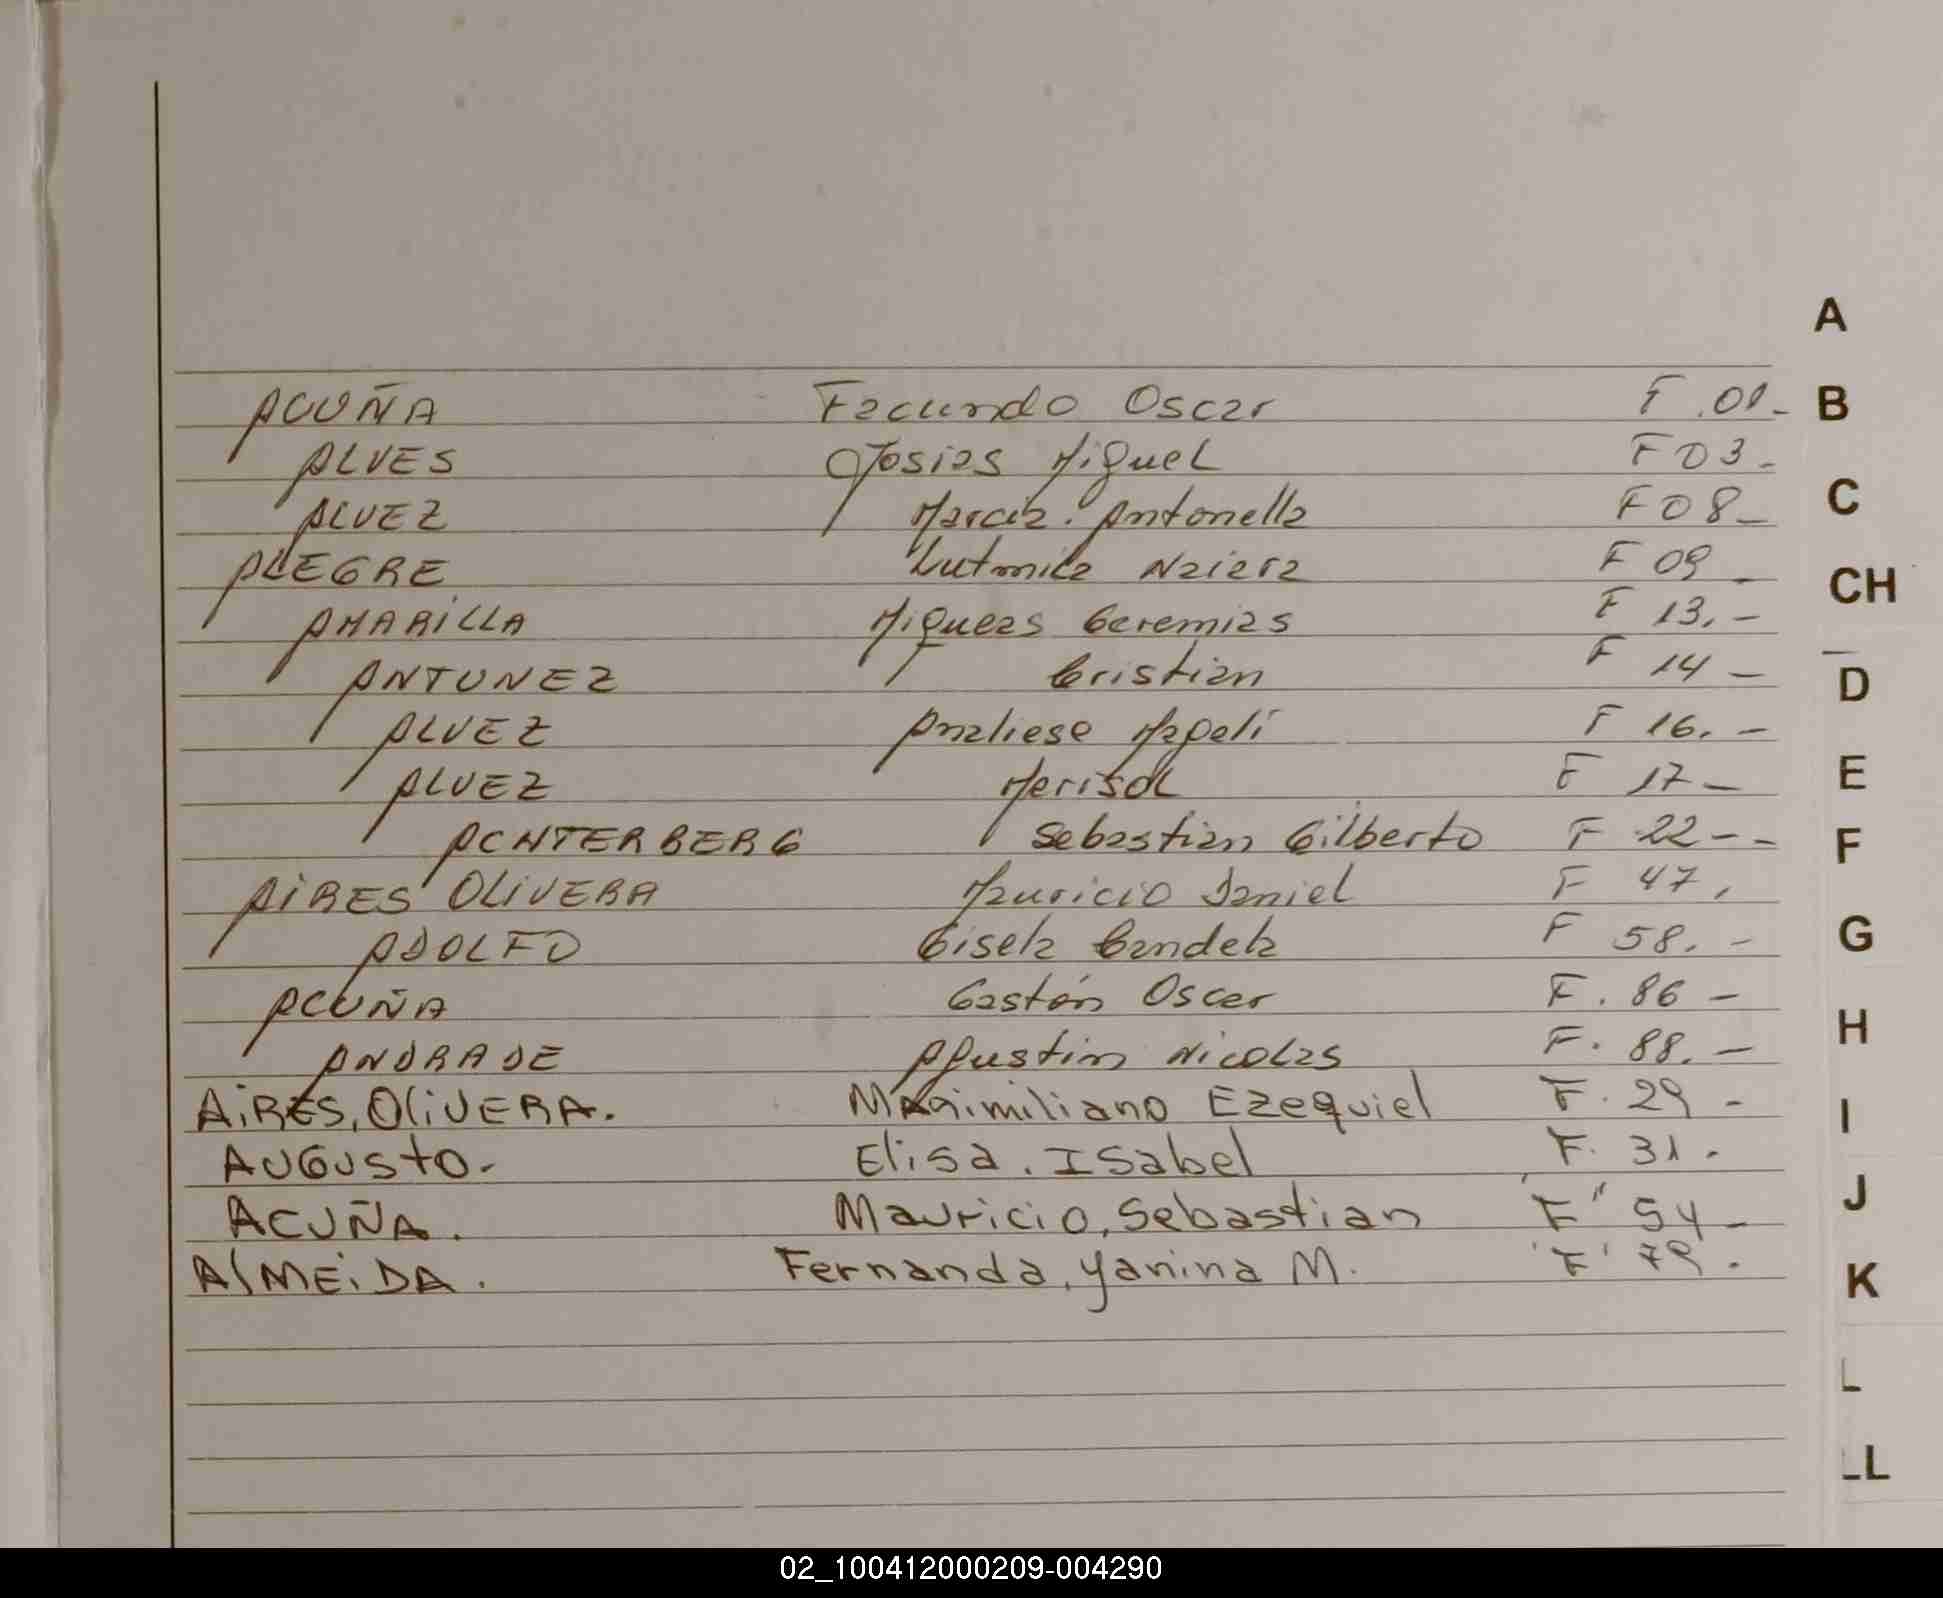 A
ACUÑA Facundo Oscar F .01-
B
ALVES Josias Miguel F 03-
ALVEZ Marcia. Antonella F 08-
C
ALEGRE Lutmila Naiara F 09 -
CH
AMARiLLA Miqueas Geremias F 13.-
ANTUNEZ Cristian F 14 -
D
ALVEZ Analiese Mageli F 16. -
ALVEZ Marisol F 17 -
E
ACHTERBERG Sebastian Gilberto F 22--
F
AiRES OLiVERA Mauricio Daniel F 47.
ADOLFO Gisela Candela F 58. -
G
ACUÑA Gastón Oscar F. 86 -
ANDRADE Agustin Nicolas F. 88. -
H
AiRES, OliVERA. Maximiliano Ezequiel F. 29 -
I
AUGUSTO. Elisa. Isabel F. 31.
J
ACUÑA. Mauricio, Sebastian F 54-
AlMEiDA. Fernanda, Yanina M. F 79.
K
L
LL
02_100412000209-004290